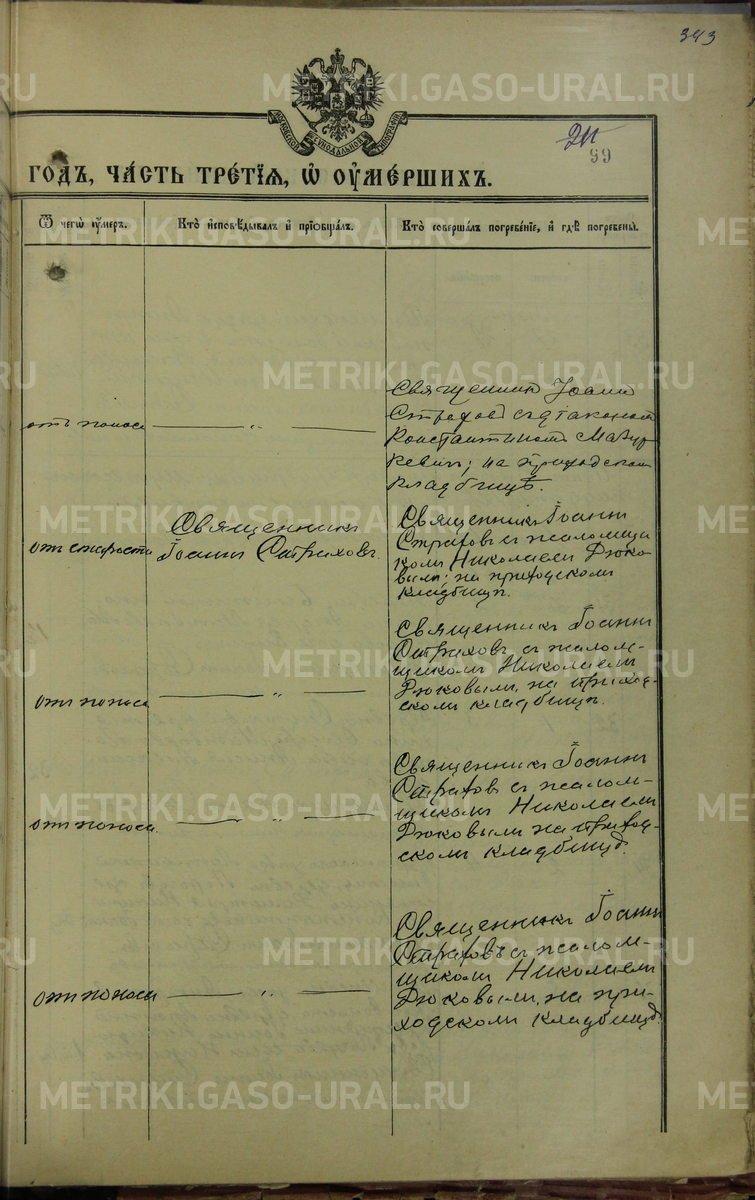 343
99
ГОДЪ, ЧА́СТЬ ТРЕ́ТІѦ, Ѡ҆ ОУ҆МЕ́РШИХЪ.
Ѿ чегѡ̀ оу҆́меръ.
Кто̀ и҆сповѣ́дывалъ и҆ прїѡбща́лъ.
Кто̀ соверша́лъ погребе́нїе, и҆ гдѣ̀ погребены̀.
отъ поноса
— „ —
Священник Іоанн
Страхов с діаконом
Константином Мазур
кевич; на приходском
кладбищѣ.
от старости
Священникъ
Іоаннъ Страховъ.
Священникъ Іоаннъ
Страховъ с псаломщи
комъ Николаемъ Рюко-
вымъ; на приходскомъ
кладбищѣ.
отъ поноса
— „ —
Священникъ Іоаннъ
Страховъ съ псалом-
щикомъ Николаемъ
Рюковымъ, на приход-
скомъ кладбищѣ.
отъ поноса.
— „ —
Священникъ Іоаннъ
Страховъ съ псалом-
щикомъ Николаемъ
Рюковымъ на приход-
скомъ кладбищѣ.
отъ поноса
— „ —
Священникъ Іоаннъ
Страховъ съ псалом-
щикомъ Николаемъ
Рюковымъ, на при-
ходскомъ кладбищѣ.
METRIKI.GASO-URAL.RU